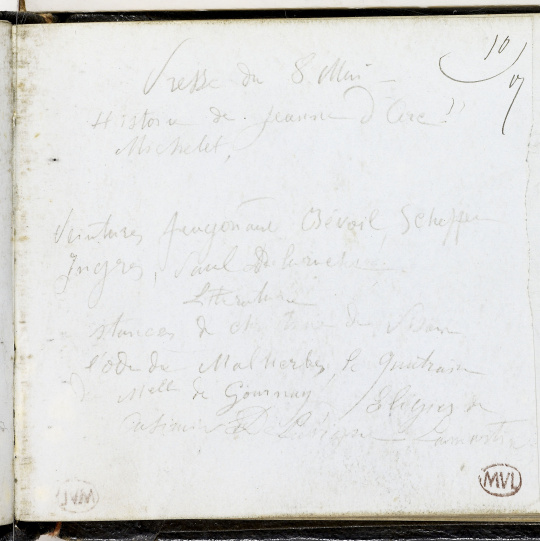 10
Presse du 8 Mai
Histoire de Jeanne d'Arc
Michelet,
Peintures, Révoil, Scheffer
Ingres, Paul Delaroche
Littérature
stances de de Pisan
l'ode de Malherbe, le quatrain
de Melle de Gournay Elégies de
Casimir Delavigne Lamartine
MVL
MVL